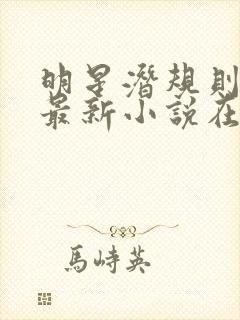 明星潛規則
最新小說在
馬峙英